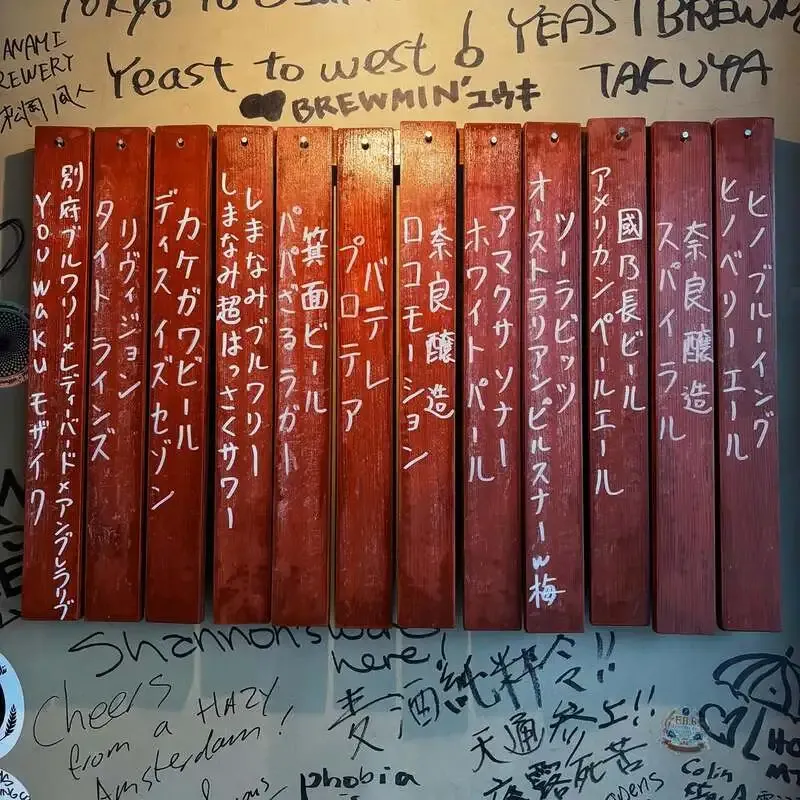 TOKYO TO
YEAST BREWING
ANAMI
REWERY
Yeast to west 6
TAKUYA
BREWMIN' ユウキ
ヒノブルーイング
ヒノベリーエール
奈良醸造
スパイラル
國乃長ビール
アメリカンペールエール
ツーラビッツ
オーストラリアンピルスナーw梅
アマクサ ソナー
ホワイトパール
奈良醸造
ロコモーション
バテレ
プロテア
箕面ビール
パパざるラガー
しまなみブルワリー
しまなみ超はっさくサワー
カケガワビール
ディス イズ セゾン
リヴィジョン
タイト ラインズ
別府ブルワリー×レディーバード×アンブレラリブ
YOU WAKU モザイク
Shannon's
here!
Cheers
from a HAZY
Amsterdam!
麦酒純粋令!!
天通参上!!
夜露死苦
phobia
Colin